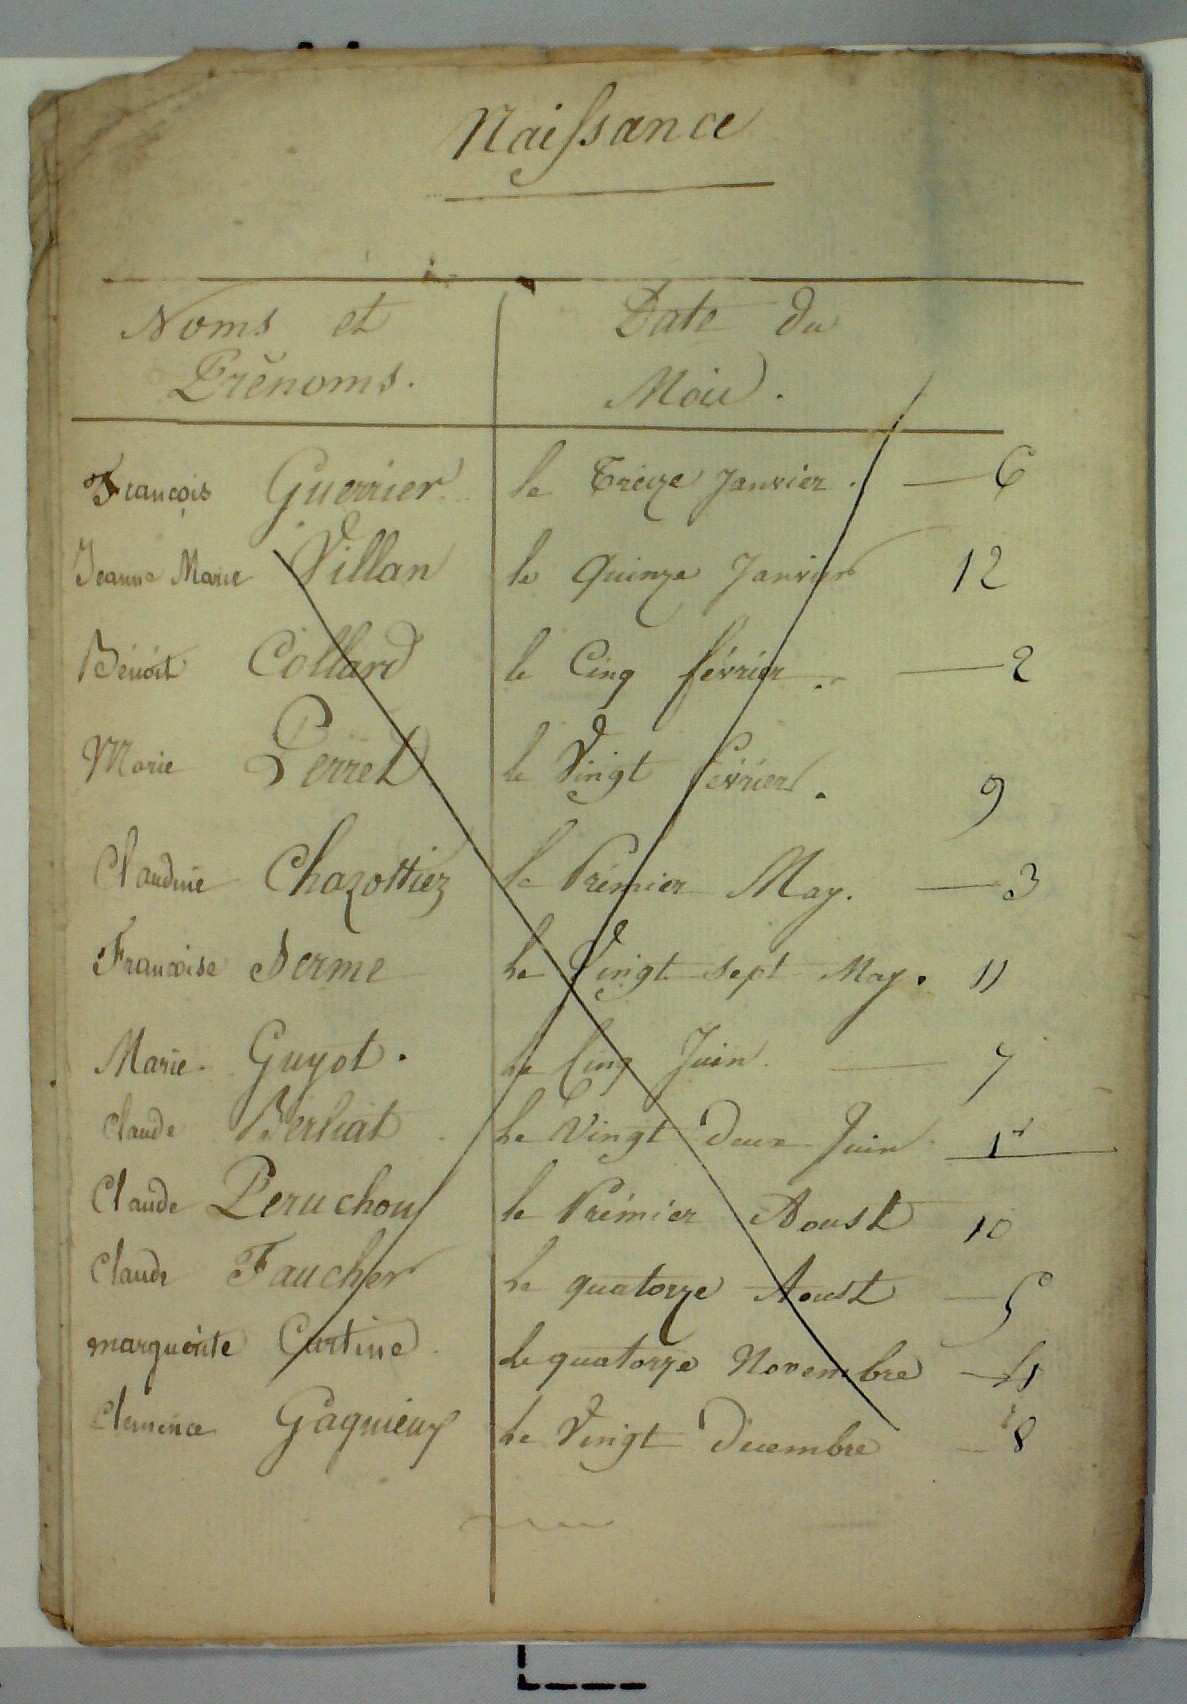 Naissance
Noms et Date du
Prénoms. Mois.
François Guerrier le treize Janvier. — 6
Jeanne Marie Villan le Quinze Janvier 12
Bénoit Collard le Cinq février. — 2
Marie Perret le Vingt février. 9
Claudine Chazottiez le Prémier May. — 3
Francoise Derme le Vingt sept May. 11
Marie. Guyot. le Cinq Juin. — 7
Claude Berliat le Vingt deux Juin 1
Claude Peruchon le Prémier Aoust 10
Claude Faucher le quatorze Aoust — 5
marguerite le quatorze Novembre — 4
Clemence Gagnieux le Vingt Décembre — 8